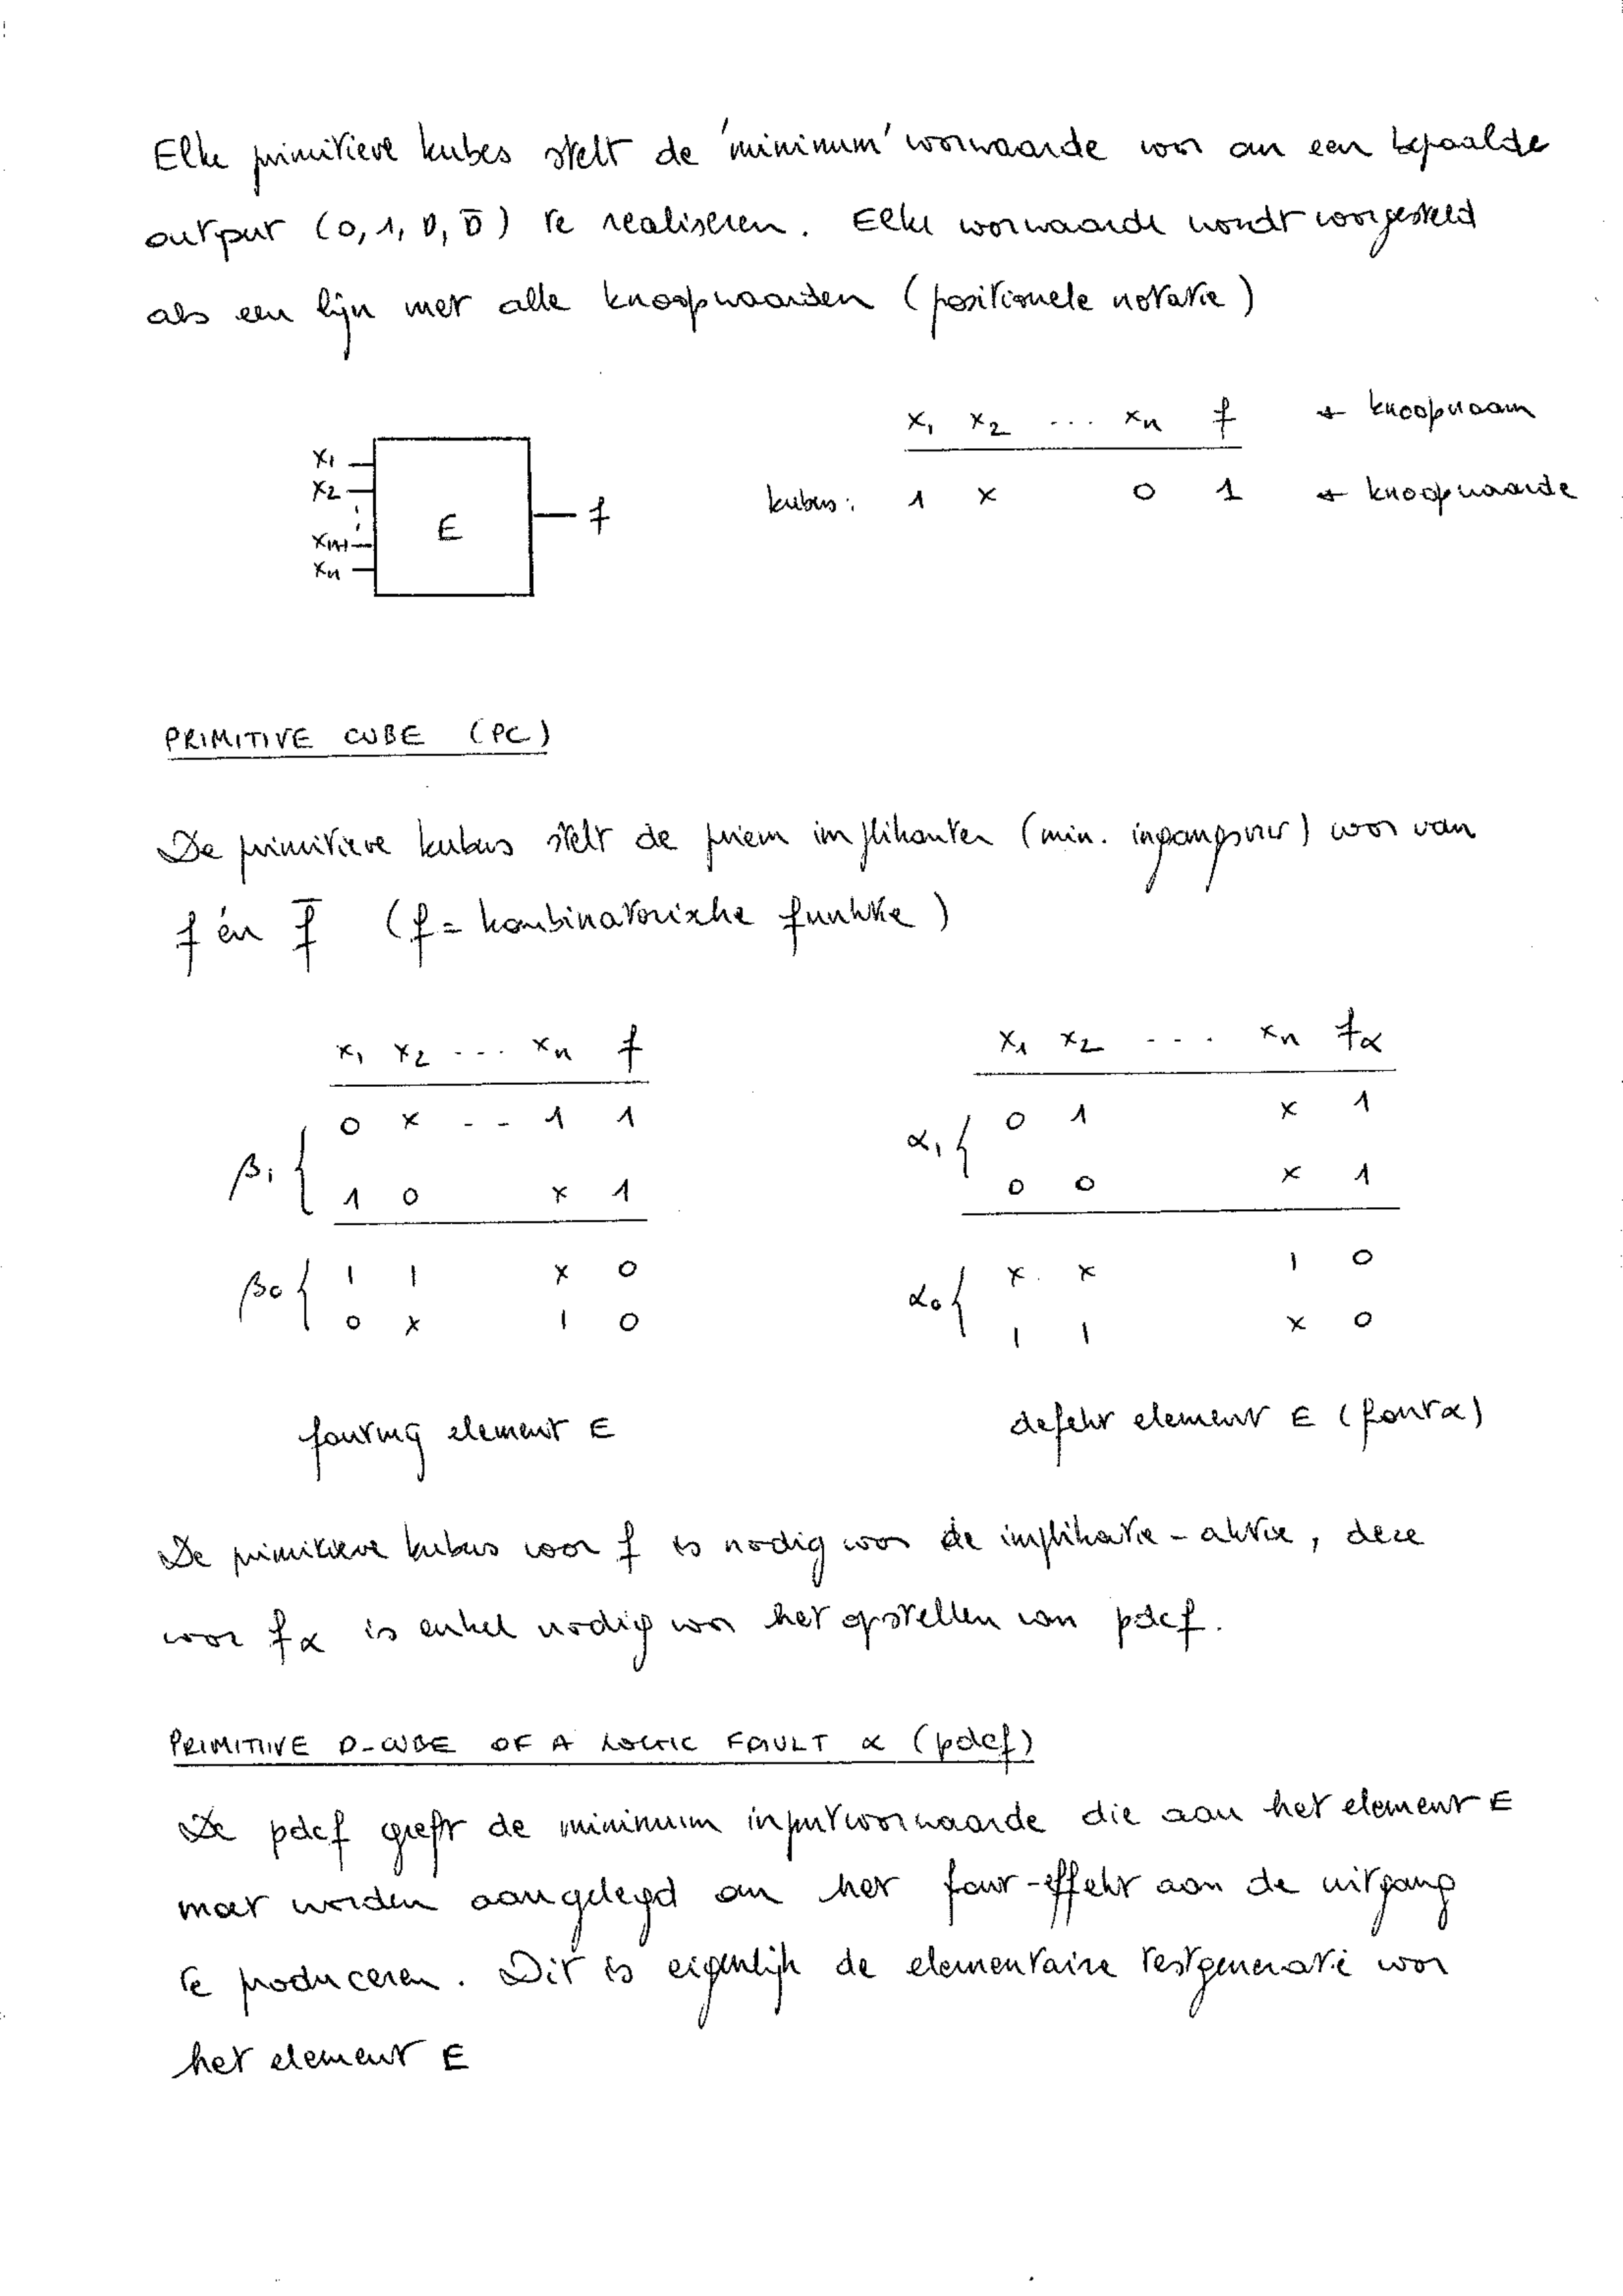 Elke primitieve kubus stelt de 'minimum' voorwaarde voor om een bepaalde
output (0, 1, D, D̅) te realiseren. Elke voorwaarde wordt voorgesteld
als een lijn met alle knoopwaarden (positionele notatie)
x₁ x₂ ... xₙ f ← knoopnaam
kubus: 1 x 0 1 ← knoopwaarde
x₁
x₂
⋮
xₙ₋₁
xₙ
E
f
PRIMITIVE CUBE (PC)
De primitieve kubus stelt de priem implikanten (min. ingangsvw) voor van
f én f̅ (f = kombinatorische funktie)
x₁ x₂ ... xₙ f
β₁ { 0 x - - 1 1
1 0 x 1
β₀ { 1 1 x 0
0 x 1 0
foutvrij element E
x₁ x₂ .... xₙ fα
α₁ { 0 1 x 1
0 0 x 1
α₀ { x x 1 0
1 1 x 0
defekt element E (fout α)
De primitieve kubus voor f is nodig voor de implikatie-aktie, deze
voor fα is enkel nodig voor het opstellen van pdcf.
PRIMITIIVE D-CUBE OF A LOGIC FAULT α (pdcf)
De pdcf geeft de minimum inputvoorwaarde die aan het element E
moet worden aangelegd om het fout-effekt aan de uitgang
te produceren. Dit is eigenlijk de elementaire testgeneratie voor
het element E